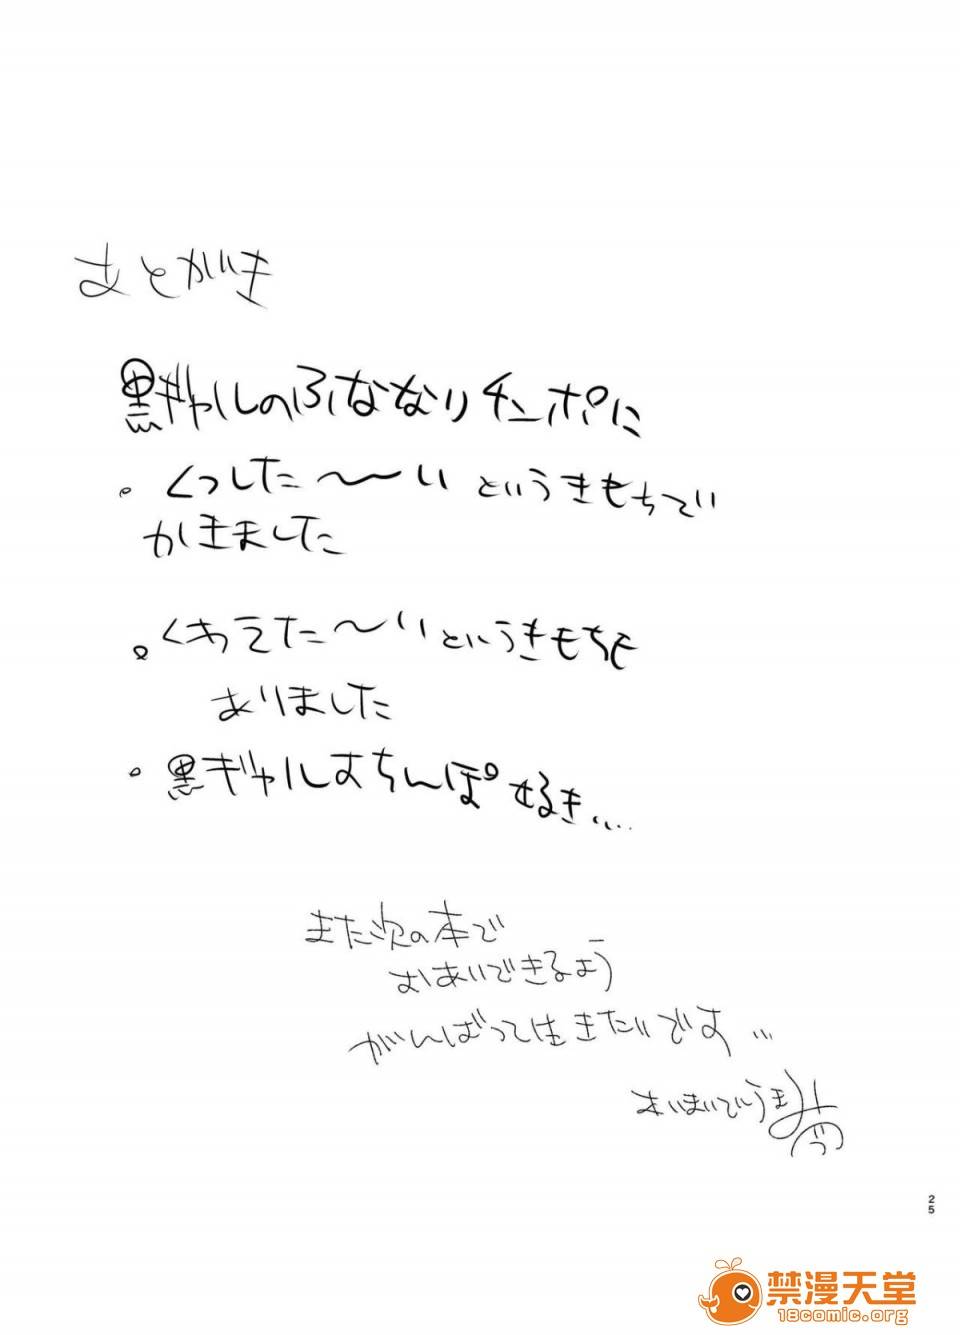 あとがき
黒ギャルのふななりチンポに
・くっした〜〜い というきもちで
かきました
・くわえた〜〜いというきもちも
ありました
・黒ギャルおちんぽ好き....
また次の本で
おあいできるよう
がんばって生きたいです...
25
禁漫天堂
18comic.org